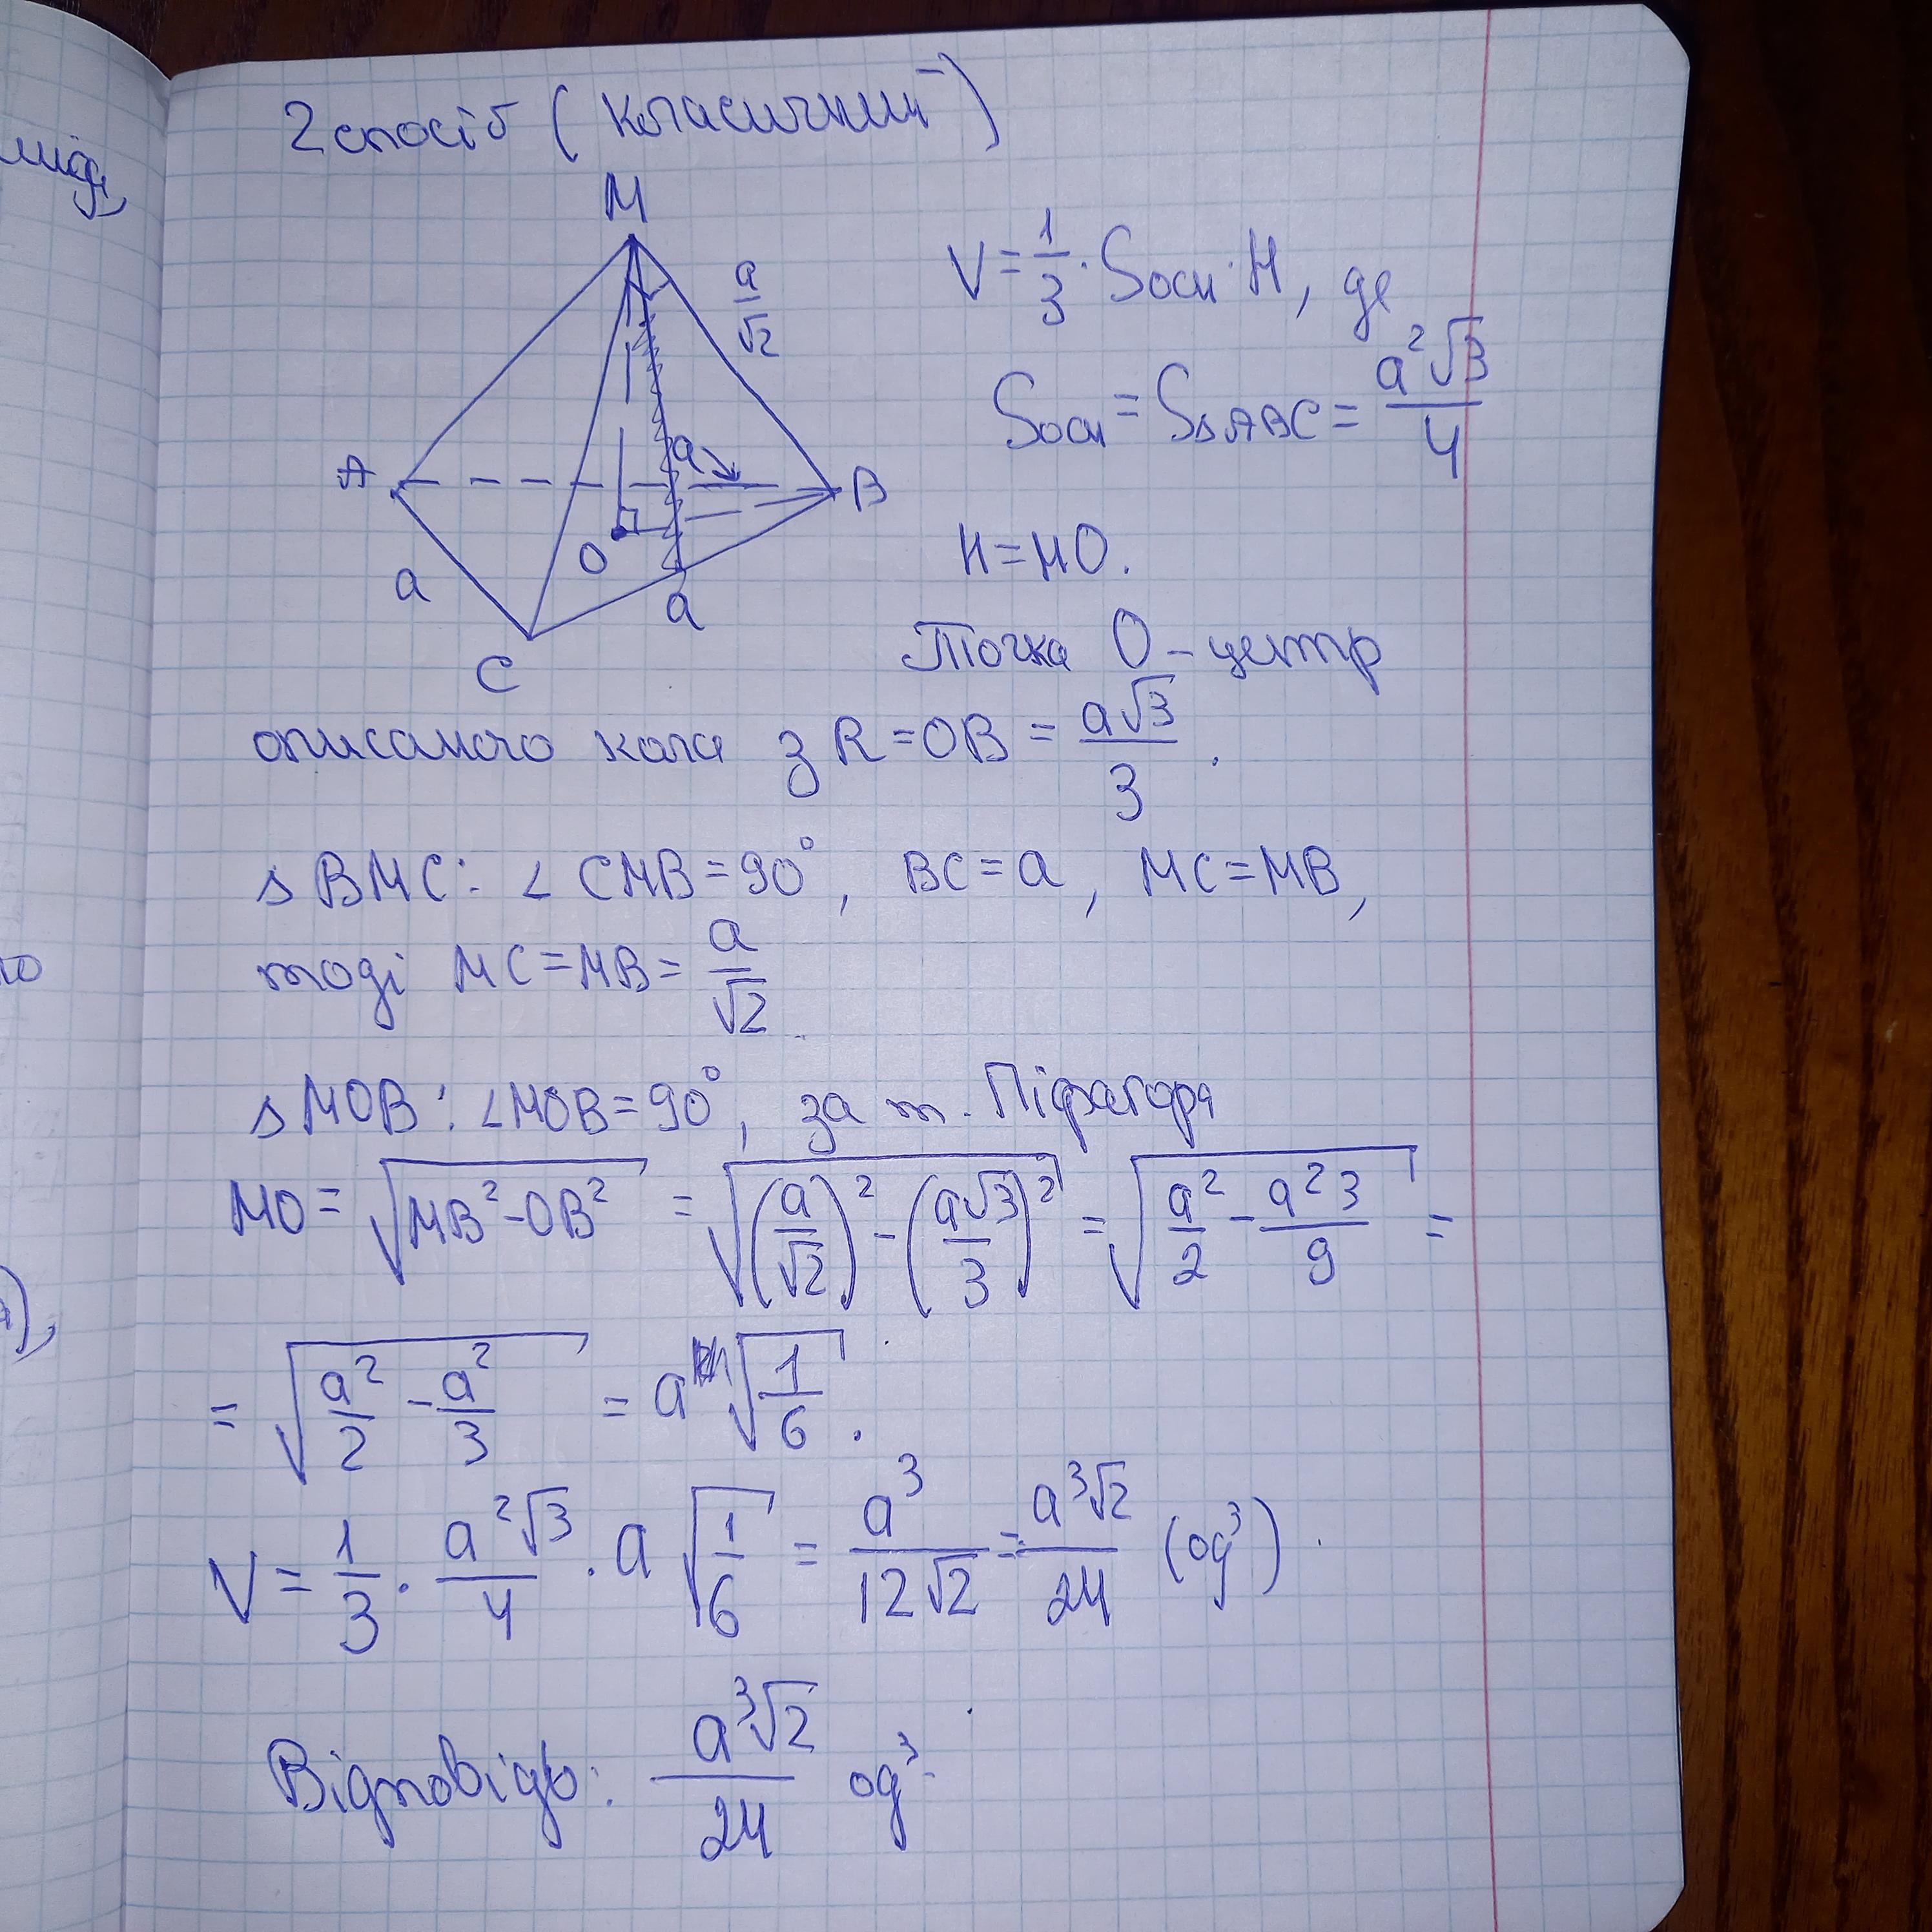 2 спосіб (класичний)
M
a/√2
V = 1/3 · Sосн · H, де
Sосн = S△ABC = a²√3/4
A
a
B
O
H = MO.
a
a
C
Точка O – центр
описаного кола з R = OB = a√3/3.
△ BMC: ∠ CMB = 90°, BC = a, MC = MB,
тоді MC = MB = a/√2.
△ MOB: ∠MOB = 90°, за т. Піфагора
MO = √(MB² - OB²) = √((a/√2)² - (a√3/3)²) = √(a²/2 - a²3/9) =
= √(a²/2 - a²/3) = a√(1/6).
V = 1/3 · a²√3/4 · a√(1/6) = a³/(12√2) = a³√2/24 (од³).
Відповідь: a³√2/24 од³.